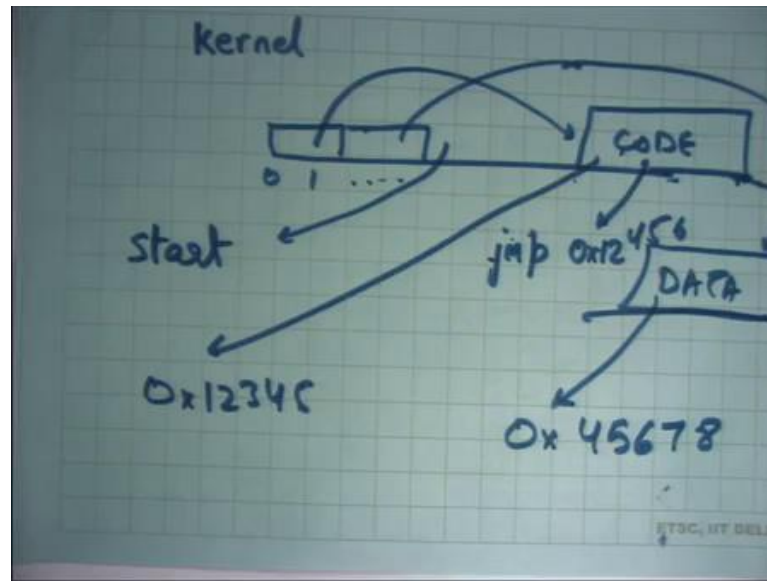 kernel
CODE
0 1 ....
start
jmp 0x12456
DATA
0x12345
0x 45678
ETSC, IIT DEL